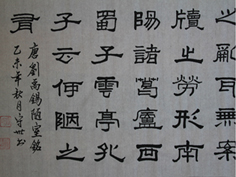 之亂耳無案
牘之勞形南
陽諸葛廬西
蜀子雲亭孔
子云何陋之
有
唐劉禹錫陋室銘
乙未年秋月守世书